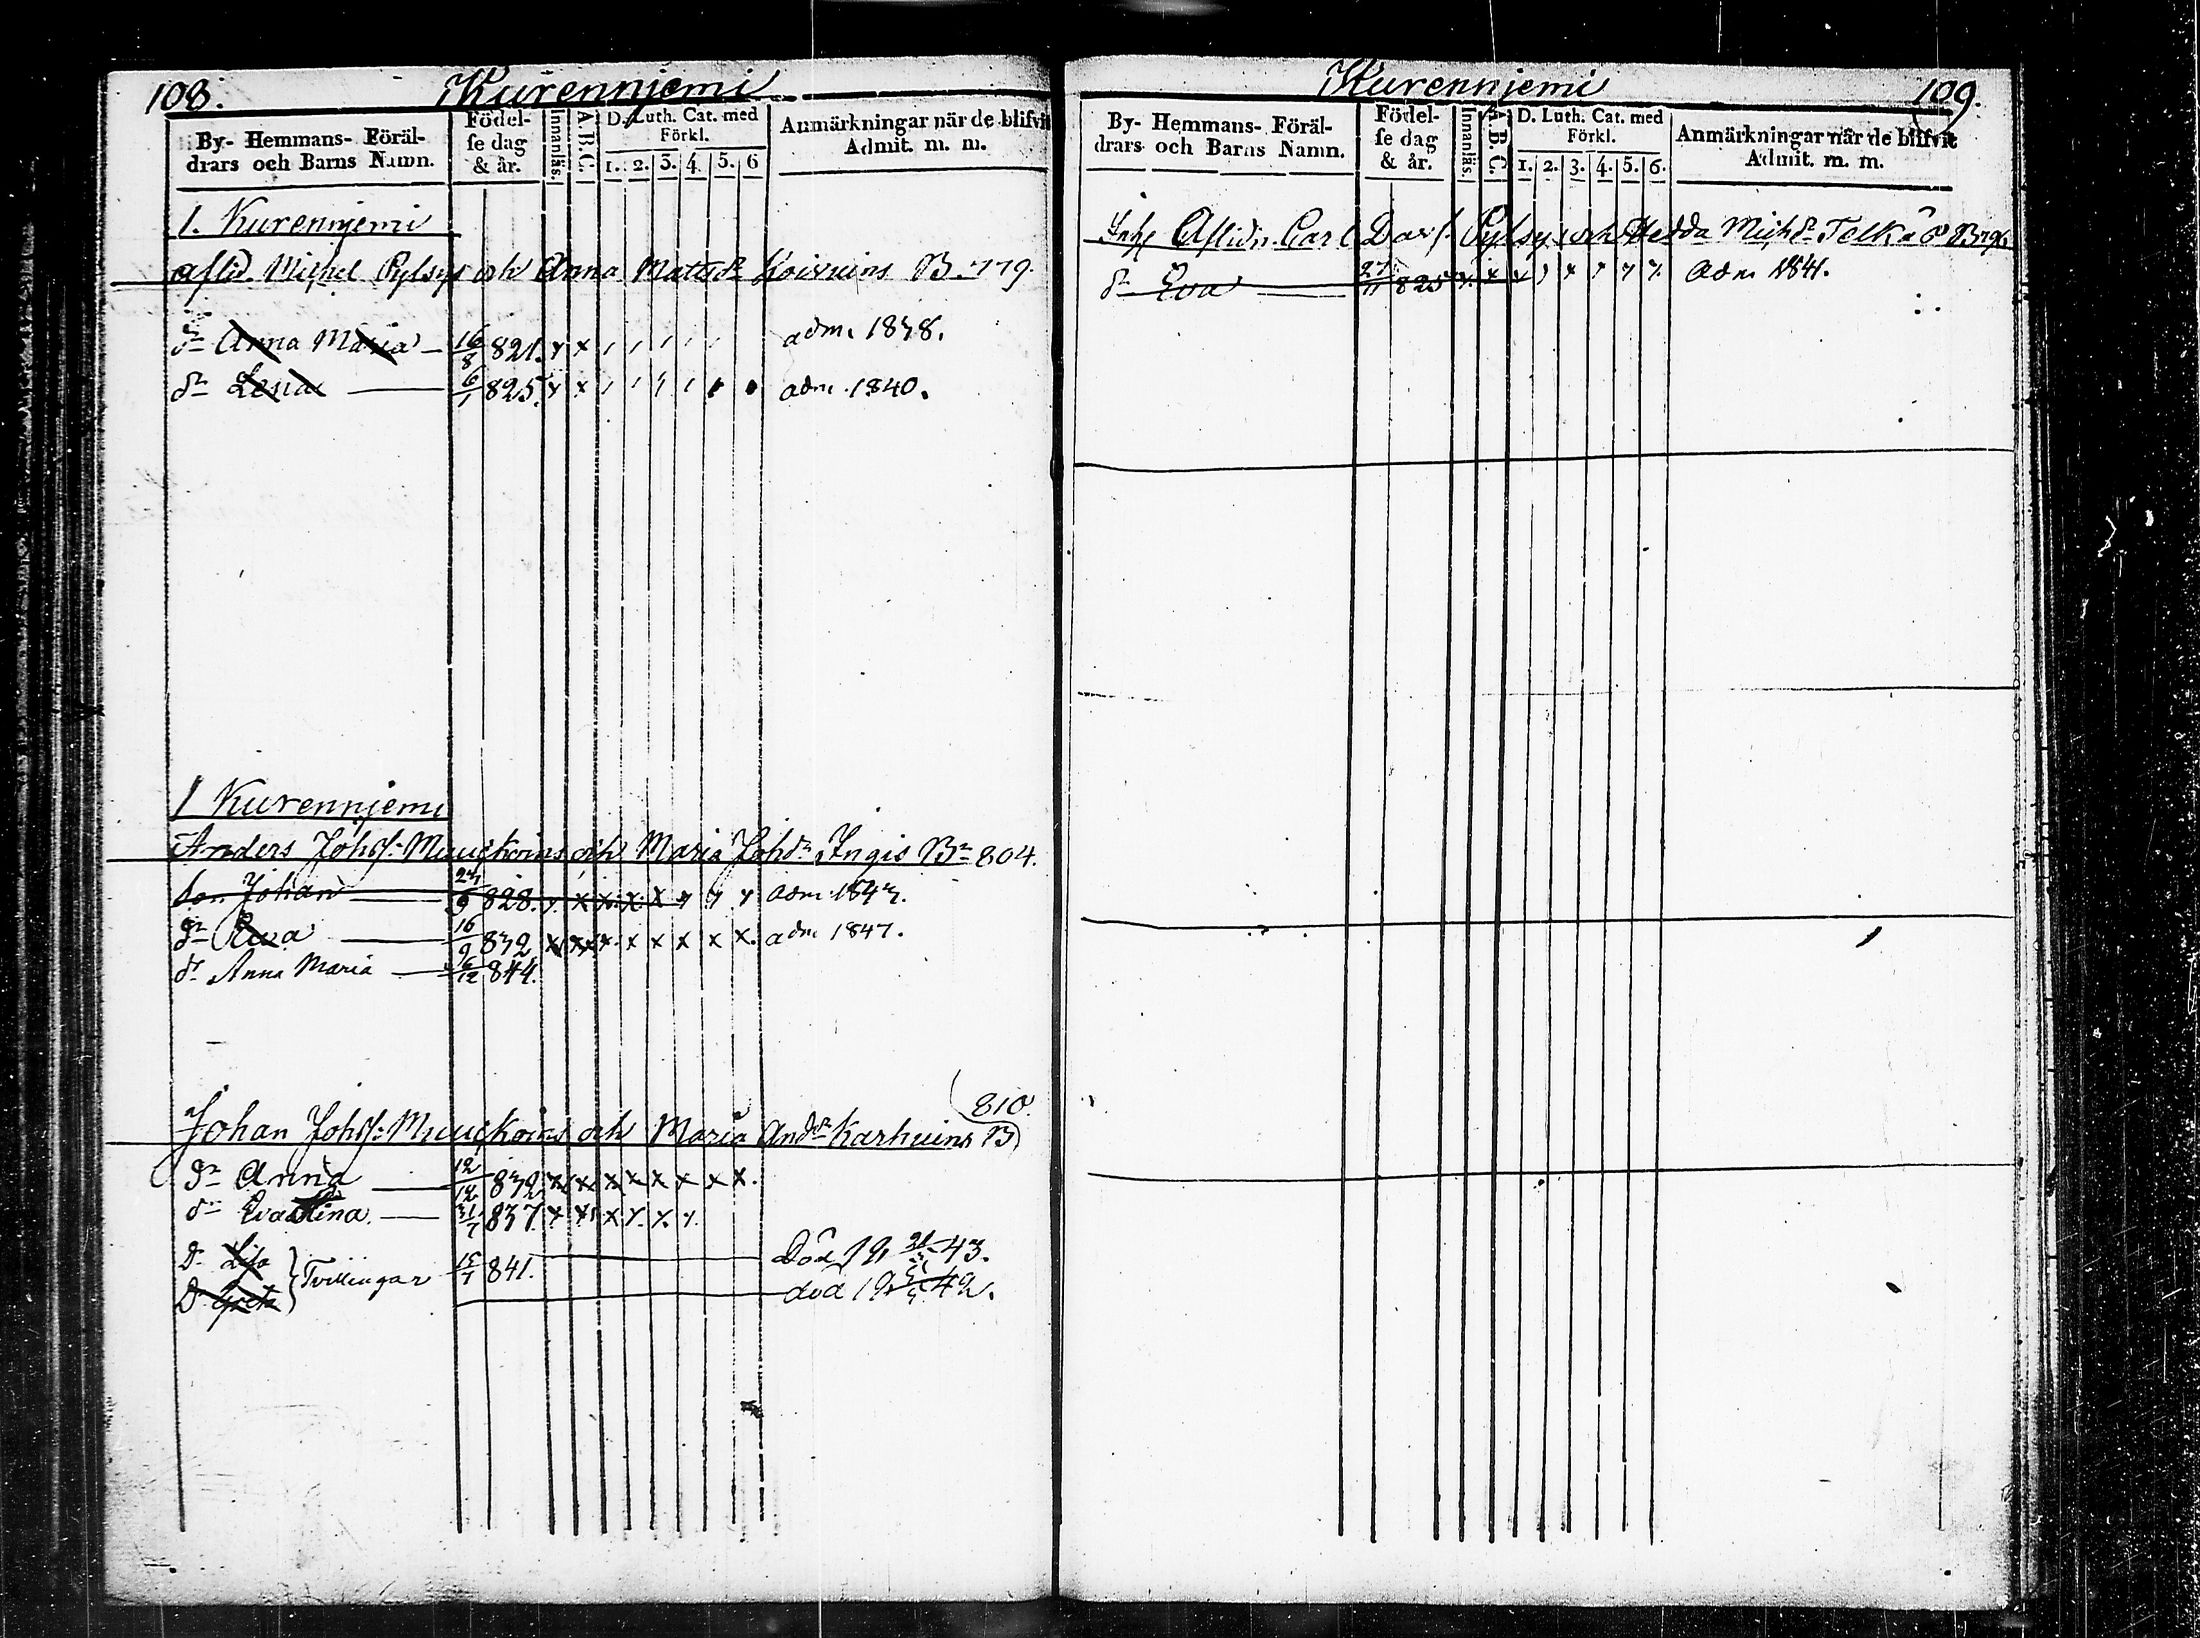 108. Kurennjemi
By- Hemmans- Föräl-
drars och Barns Namn.
Födel-
se dag
& år.
Innanläs.
A.B.C.
D. Luth. Cat. med
Förkl.
1. 2. 3. 4 5. 6
Anmärkningar när de blifvit
Admit. m. m.
1. Kurennjemi
aflid. Michel Pylsys och Anna Mattsdr Koivuins B. 779.
dr Anna Maria 16/8 821. x x adm. 1838.
dr Lena 6/1 825. x x adm. 1840.
1 Kurennjemi
Anders Johss: Muuckoins och Maria Johdr Ingis Br 804.
Son Johan 828. x x x x adm. 1843.
dr Eva 16/9 832 x x x x x x x x. adm 1847.
dr Anna Maria 16/12 844.
(810.
Johan Johss: Muuckoins och Maria Andsdr Karhuins B)
dr Anna 12/12 832 x x x x x x x x.
dr Eva Stina. 31/7 837. x x x x x x
Dr Lisa
Dr Greta } Tvillingar 15/7 841.
Död 43.
död 42.
Kurennjemi 109.
By- Hemmans- Föräl-
drars och Barns Namn.
Födel-
se dag
& år.
Innanläs.
A.B.C.
D. Luth. Cat. med
Förkl.
1. 2. 3. 4. 5. 6.
Anmärkningar när de blifvit
Admit. m. m.
Inh Aflidn. Carl Davs. Pylsys och Hedda Michdr Telkä
dr Eva 27/11 825 adm 1841.